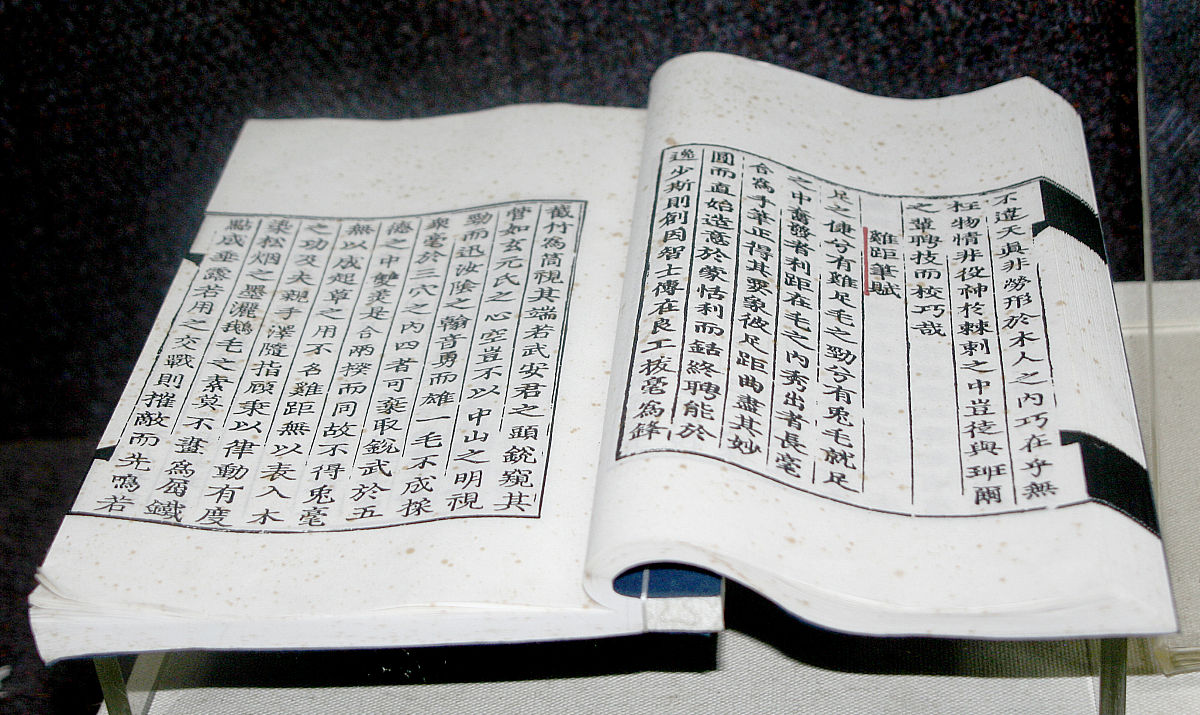 不違天眞非勞形於木人之內巧在乎無
枉物情非役神於棘刺之中豈徒與班爾
之輩騁技而校巧哉
雞距筆賦
足之健兮有雞足毛之勁兮有兎毛就足
之中奮發者利距在毛之內秀出者長毫
合為手筆正得其要象彼足距曲盡其妙
圓而直始造意於蒙恬利而銛終騁能於
逸少斯則創因智士傳在良工拔毫為鋒
截竹為筒視其端若武安君之頭銳窺其
管如玄元氏之心空豈不以中山之明視
勁而迅汝陰之翰音勇而雄一毛不成採
衆毫於三穴之內四者可棄取銳武於五
德之中雙美是合兩揆而同故不得兎毫
無以成起草之用不名雞距無以表入木
之功及夫親手澤隨指顧秉以律動有度
染松烟之墨灑鵝毛之素莫不畫為屑鐵
點成垂露若用之交戰則摧敵而先鳴若